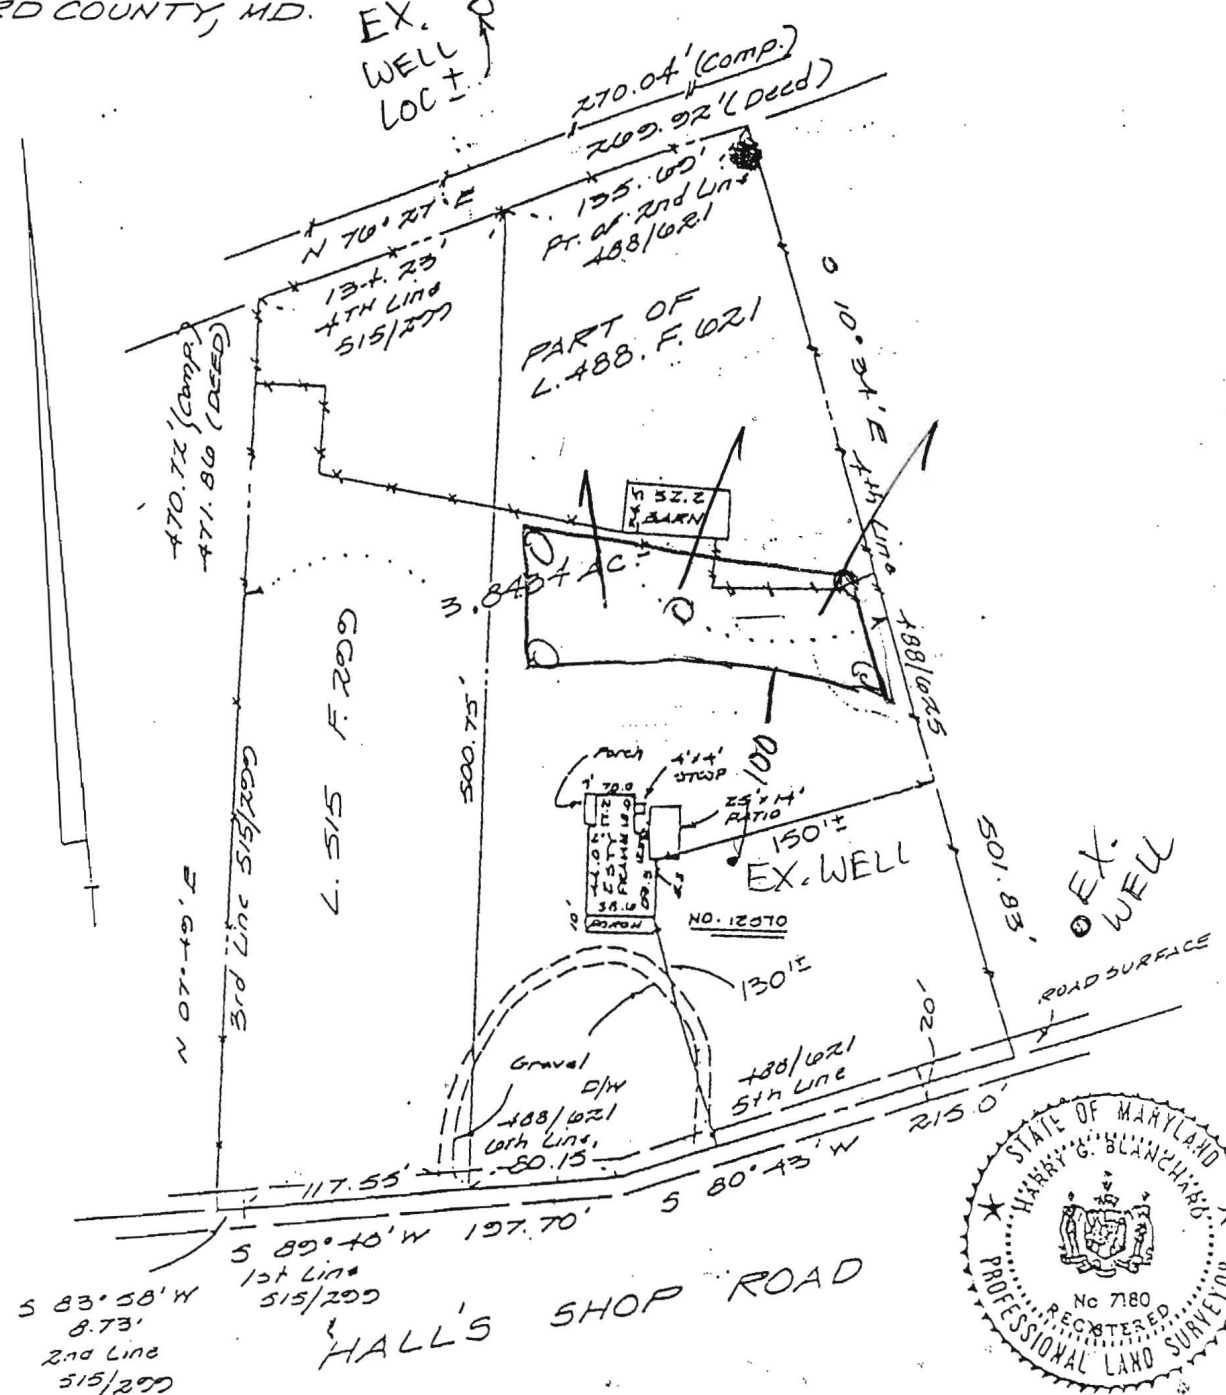 RD COUNTY, MD.
EX.
WELL
LOC ±
270.04' (Comp.)
269.92' (Deed)
N 76° 27' E
135.69'
PT. of 2nd Line
488/621
134.23'
4TH Line
515/299
PART OF
L. 488. F. 621
470.72' (Comp)
471.86 (DEED)
0 10° 34' E 4th Line
488/625
32.2
BARN
3.8434 AC.
L. 515 F. 299
500.75'
3rd Line 515/299
N 07° 49' E
100
Porch
4'x4'
STOOP
25' x 14'
PATIO
7'
20.0
2 STY
FRAME
38.6
10'
PORCH
150'±
EX. WELL
NO. 12570
501.83'
EX.
WELL
130'±
ROAD SURFACE
20'
Gravel
D/W
488/621
6th Line
80.15
488/621
5th Line
215.0'
117.55'
S 80° 43' W
S 89° 48' W 197.70'
1st Line
515/299
S 83° 58' W
8.73'
2nd Line
515/299
HALL'S SHOP ROAD
STATE OF MARYLAND
HARRY G. BLANCHARD
No 7180
REGISTERED
PROFESSIONAL LAND SURVEYOR